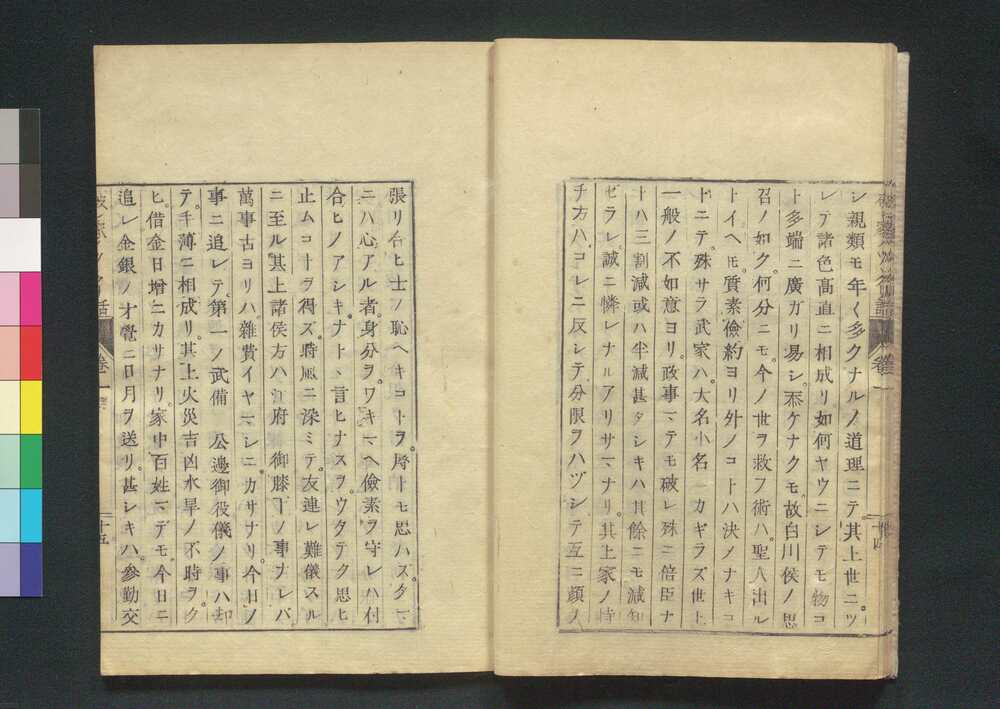 シ親類モ年〱多クナルノ道理ニテ其上世ニツ
レテ諸色髙直ニ相成リ如何ヤウニシテモ物コ
ト多端ニ廣ガリ易シ忝ケナクモ故白川侯ノ思
召ノ如ク何分ニモ今ノ世ヲ救フ術ハ聖人出ル
トイヘ𪜈質素儉約ヨリ外ノコトハ決メナキコ
トニテ殊サラ武家ハ大名小名ニカギラズ世上
一般ノ不如意ヨリ政事マデモ破レ殊ニ倍臣ナ
トハ三割減或ハ半減甚タシキハ其餘ニモ減知
セラレ誠ニ憐レナルアリサマナリ其上家ノ持
チ方ハコレニ反シテ分限ヲハヅシテ互ニ顔ノ
卷一
張リ合ヒ士ノ恥ヘキコトヲ辱トモ思ハスタマ
ニハ心アル者身分ヲワキマヘ儉素ヲ守レハ付
合ヒノアシキナト言ヒナスヲウタテク思ヒ
止ムコトヲ得ズ時風ニ深ミテ友連レ難儀スル
ニ至ル其上諸侯方ハ江府御膝下ノ事ナレバ
萬事古ヨリハ雜費イヤマシニカサナリ今日ノ
事ニ追レテ第一ノ武備公邊御役儀ノ事ハ却
テ手薄ニ相成リ其上火災吉凶水旱ノ不時ヲク
ヒ借金日增ニカサナリ家中百姓マデモ今日ニ
追レ金銀ノ才覺ニ日月ヲ送リ甚シキハ參勤交
卷一
十五